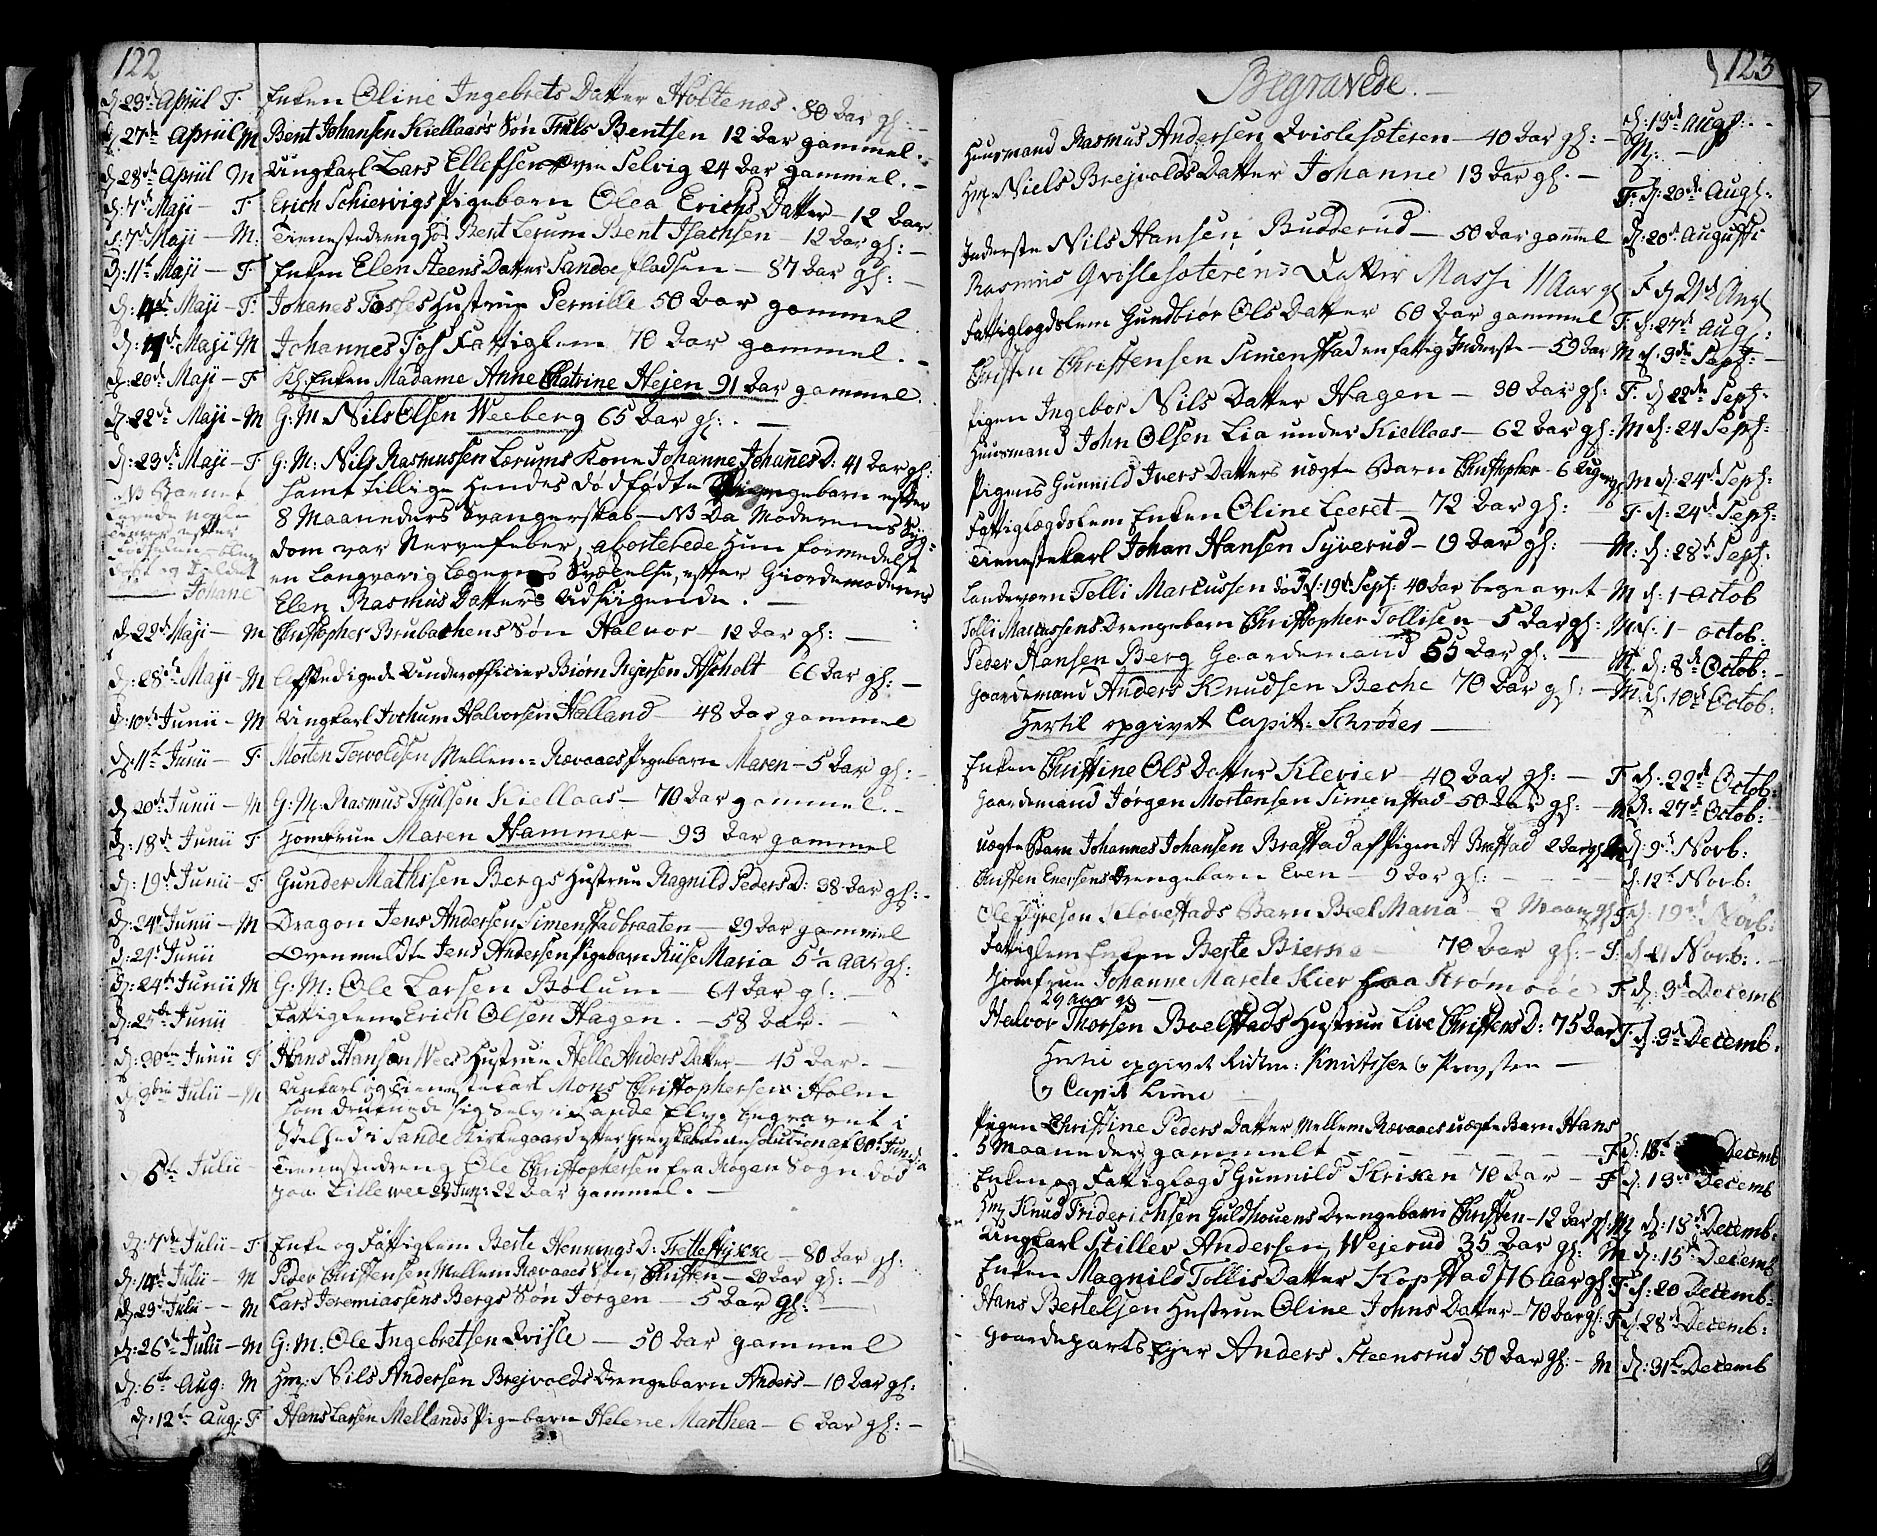 122
d: 23d Apriil F. Enken Oline Ingebrets Datter Holtenæs. 80 Aar gl: –
d: 27de Apriil M Bent Johansen Kiellaas's Søn Truls Bentsen 12 Aar gammel. –
d: 28de Apriil M Ungkarl Lars Ellefsen Selvig 24 Aar gammel. –
d: 7d Maji – F. Erich Schiervigs Pigebarn Olea Erichs Datter – 12 Aar
d: 7d Maji – M. Tienestedreng hos Bent Lerum Bent Isachsen – 12 Aar gl: –
d: 11te Maji – F. Enken Elen Steens Datter Sandøe – 87 Aar gl: –
d: 14de Maji – F. Johanes Fosses Hustrue Pernille 50 Aar gammel.
d: 14de Maji M Johannes Fos Fattiglem 70 Aar gammel. –
d: 20de Maji – F Enken Madame Anne Chatrine Hejen 91 Aar gammel.
d: 22de Maji – M G: M Nils Olsen Weeberg 65 Aar gl: . –
d: 23de Maji – F G: M: Nils Rasmussen Lærums Kone Johanne Johanes D: 41 Aar gl:
NB Barnet samt tillige hendes dødfødte Pigebarn efter
8 Maaneders Svangerskab – NB Da Moderens Syg-
dom var Nervefeber, aborterede Hun formedelst
en langvarig Svækelse, efter Giordemoderens
Johane Elen Rasmus Datters Udsiigende. –
d: 22de Maji – M Christopher Brubachens Søn Halvor – 12 Aar gl: –
d: 28de Maji – M Afskedigede Underofficier Biørn Rejersen Asholt 66 Aar gl: –
d: 10de Junii – M Ungkarl Jochum Halvorsen Halland – 48 Aar gammel
d: 11te Junii – F. Morten Tervoldsen Mellem-Rævaaes Pigebarn Maren – 5 Aar gl: –
d: 20de Junii – M G: M. Rasmus Kiellaas – 70 Aar gammel. –
d: 18de Junii F Jomfrue Maren Hammer – 93 Aar gammel
d: 19de Junii – F Gunder Mathisen Bergs Hustrue Ragnild Peders D: 38 Aar gl: –
d: 24de Junii – M Dragon Jens Andersen Simenstadbraaten – 29 Aar gammel
d: 24de Junii Ovenmeldte Jens Andersen Pigebarn Riise Maria 5½ Aar gl:
d: 24de Junii M G: M: Ole Larsen Bølum – 64 Aar gl: –
d: 25de Junii Fattiglem Erich Olsen Hagen. – 58 Aar. –
d: 30te Junii F Hans Hansen Wees Hustrue Helle Anders Datter – 45 Aar. –
d: 3die Julii – M Unkarl og Tienestekarl Mons Christophersen Holm
som druknede sig selv i Sande Elv, begravet i
Stilhed i Sande Kirkegaard efter Øvrigheds Resolution af 30te Junii
d: 5te Julii – Tienestedreng Ole Christophersen fra Rogen Sogn død
paa Lille wee 29 Jun: 22 Aar gammel. –
d: 7de Julii – F Enke og Fattiglem Berte Hennings D: Trettestykke – 80 Aar gl:
d: 14de Julii – M Peder Christensen Mellem Rævaaes Søn Christen – 20 Aar gl: –
d: 23de Julii – M Lars Jeremiassens Bergs Søn Jørgen – 5 Aar gl:
d: 26de Julii – M G: M: Ole Ingebretsen Qvisle – 50 Aar gammel
d: 6te Aug: M Hm: Nils Andersen Brejvolds Drengebarn Anders – 10 Aar gl:
d: 12te Aug: F. Hans Larsen Mellands Pigebarn Helene Marthea – 6 Aar gl: –
123
Begravede. –
Huusmand Rasmus Andersen Qvislesæteren – 40 Aar gl: – d: 13de Augs: – M: –
Hm: Niels Brejvolds Datter Johanne 13 Aar gl. – F. d: 20de Augs: –
Inderste Nils Hansen Budderud – 50 Aar gammel d: 20de Augusti
Rasmus Qvislesæterens Datter Massi 11 Aar gl F d 21d Aug
Fattiglægdslem Gundbiør Ols Datter 60 Aar gammel F. d: 27de Aug:
Christen Christensen Simenstad en fattig Inderste – 59 Aar M d: 3die Sept: –
Pigen Ingebor Nils Datter Hagen – 30 Aar gl: F. d: 22de Sept:
Huusmand John Olsen Lia under Kiellaas – 62 Aar gl: M d: 24 Sept:
Pigens Gunnild Ivers Datters uægte Barn Christopher – 6 Uger gl M d: 24de Sept:
Fattiglægdslem Enken Oline Leeret – 72 Aar gl: – F. d: 24de Sept:
Tienestekarl Johan Hansen Syverud – 19 Aar gl: – M: d: 28de Sept:
Landeværn Tolli Marcussen død d: 19de Sept: 40 Aar begravet – M d: 1 – Octob
Tolli Marcussens Drengebarn Christopher Tollisen – 5 Aar gl: – M d: 1 – Octob:
Peder Hansen Berg Gaardemand 55 Aar gl: – M d: 8de Octob: –
Gaardemand Anders Knudsen Beche 70 Aar gl: – M: d: 10de Octob:
Hertil opgivet Capit: Schrøder –
Enken Christine Ols Datter Klevier – 40 Aar gl: – F d: 22de Octob:
Gaardemand Jørgen Mortensen Simenstad – 50 Aar gl: – M d: 27de Octob:
uægte Barn Johannes Johansen Brastad af Pigen A Brastad 2 Aar gl: M d: 9de Novb:
Christen Enersens Drengebarn Even – 9 Aar gl: – – – d: 12te Novb:
Ole Kløvestads Barn Boel Maria – 2 Maan gl F d: 19de Novb:
Fattiglem Enken Berte Bierkø – 70 Aar gl: – F. d: 21 Novb: –
Jomfrue Johanne Marete Kier fra Strømsøe F d: 3de Decemb
29 Aar gl –
Halvor Thorsen Boelstads Hustrue Live Christens D: 75 Aar F d: 3de Decemb:
Hertil opgivet Ridtm: Knutssen & Provsten –
& Capit Lime
Pigen Christine Peders Datter Mellem Rævaaes uægte Barn Hans
5 Maaneder gammelt – – – – F d: 10te Decemb
Enken og Fattiglægd Gunnild Skriken 70 Aar – F d: 13de Decemb
Hm: Knud Friderichsen Guldhouens Drengebarn Christen – 12 Aar gl: M d: 18de Decemb:
Ungkarl Stiller Andersen Wejerud 35 Aar gl: M d: 15de Decemb
Enken Magnild Tollis Datter Kopstad 76 Aar gl: F d: 20 Decemb:
Hans Bertelsen Hustrue Oline Johns Datter – 70 Aar gl: F d: 28de Decemb:
Gaardeparts Ejer Anders Steensrud 50 Aar gl: – M d: 31te Decemb